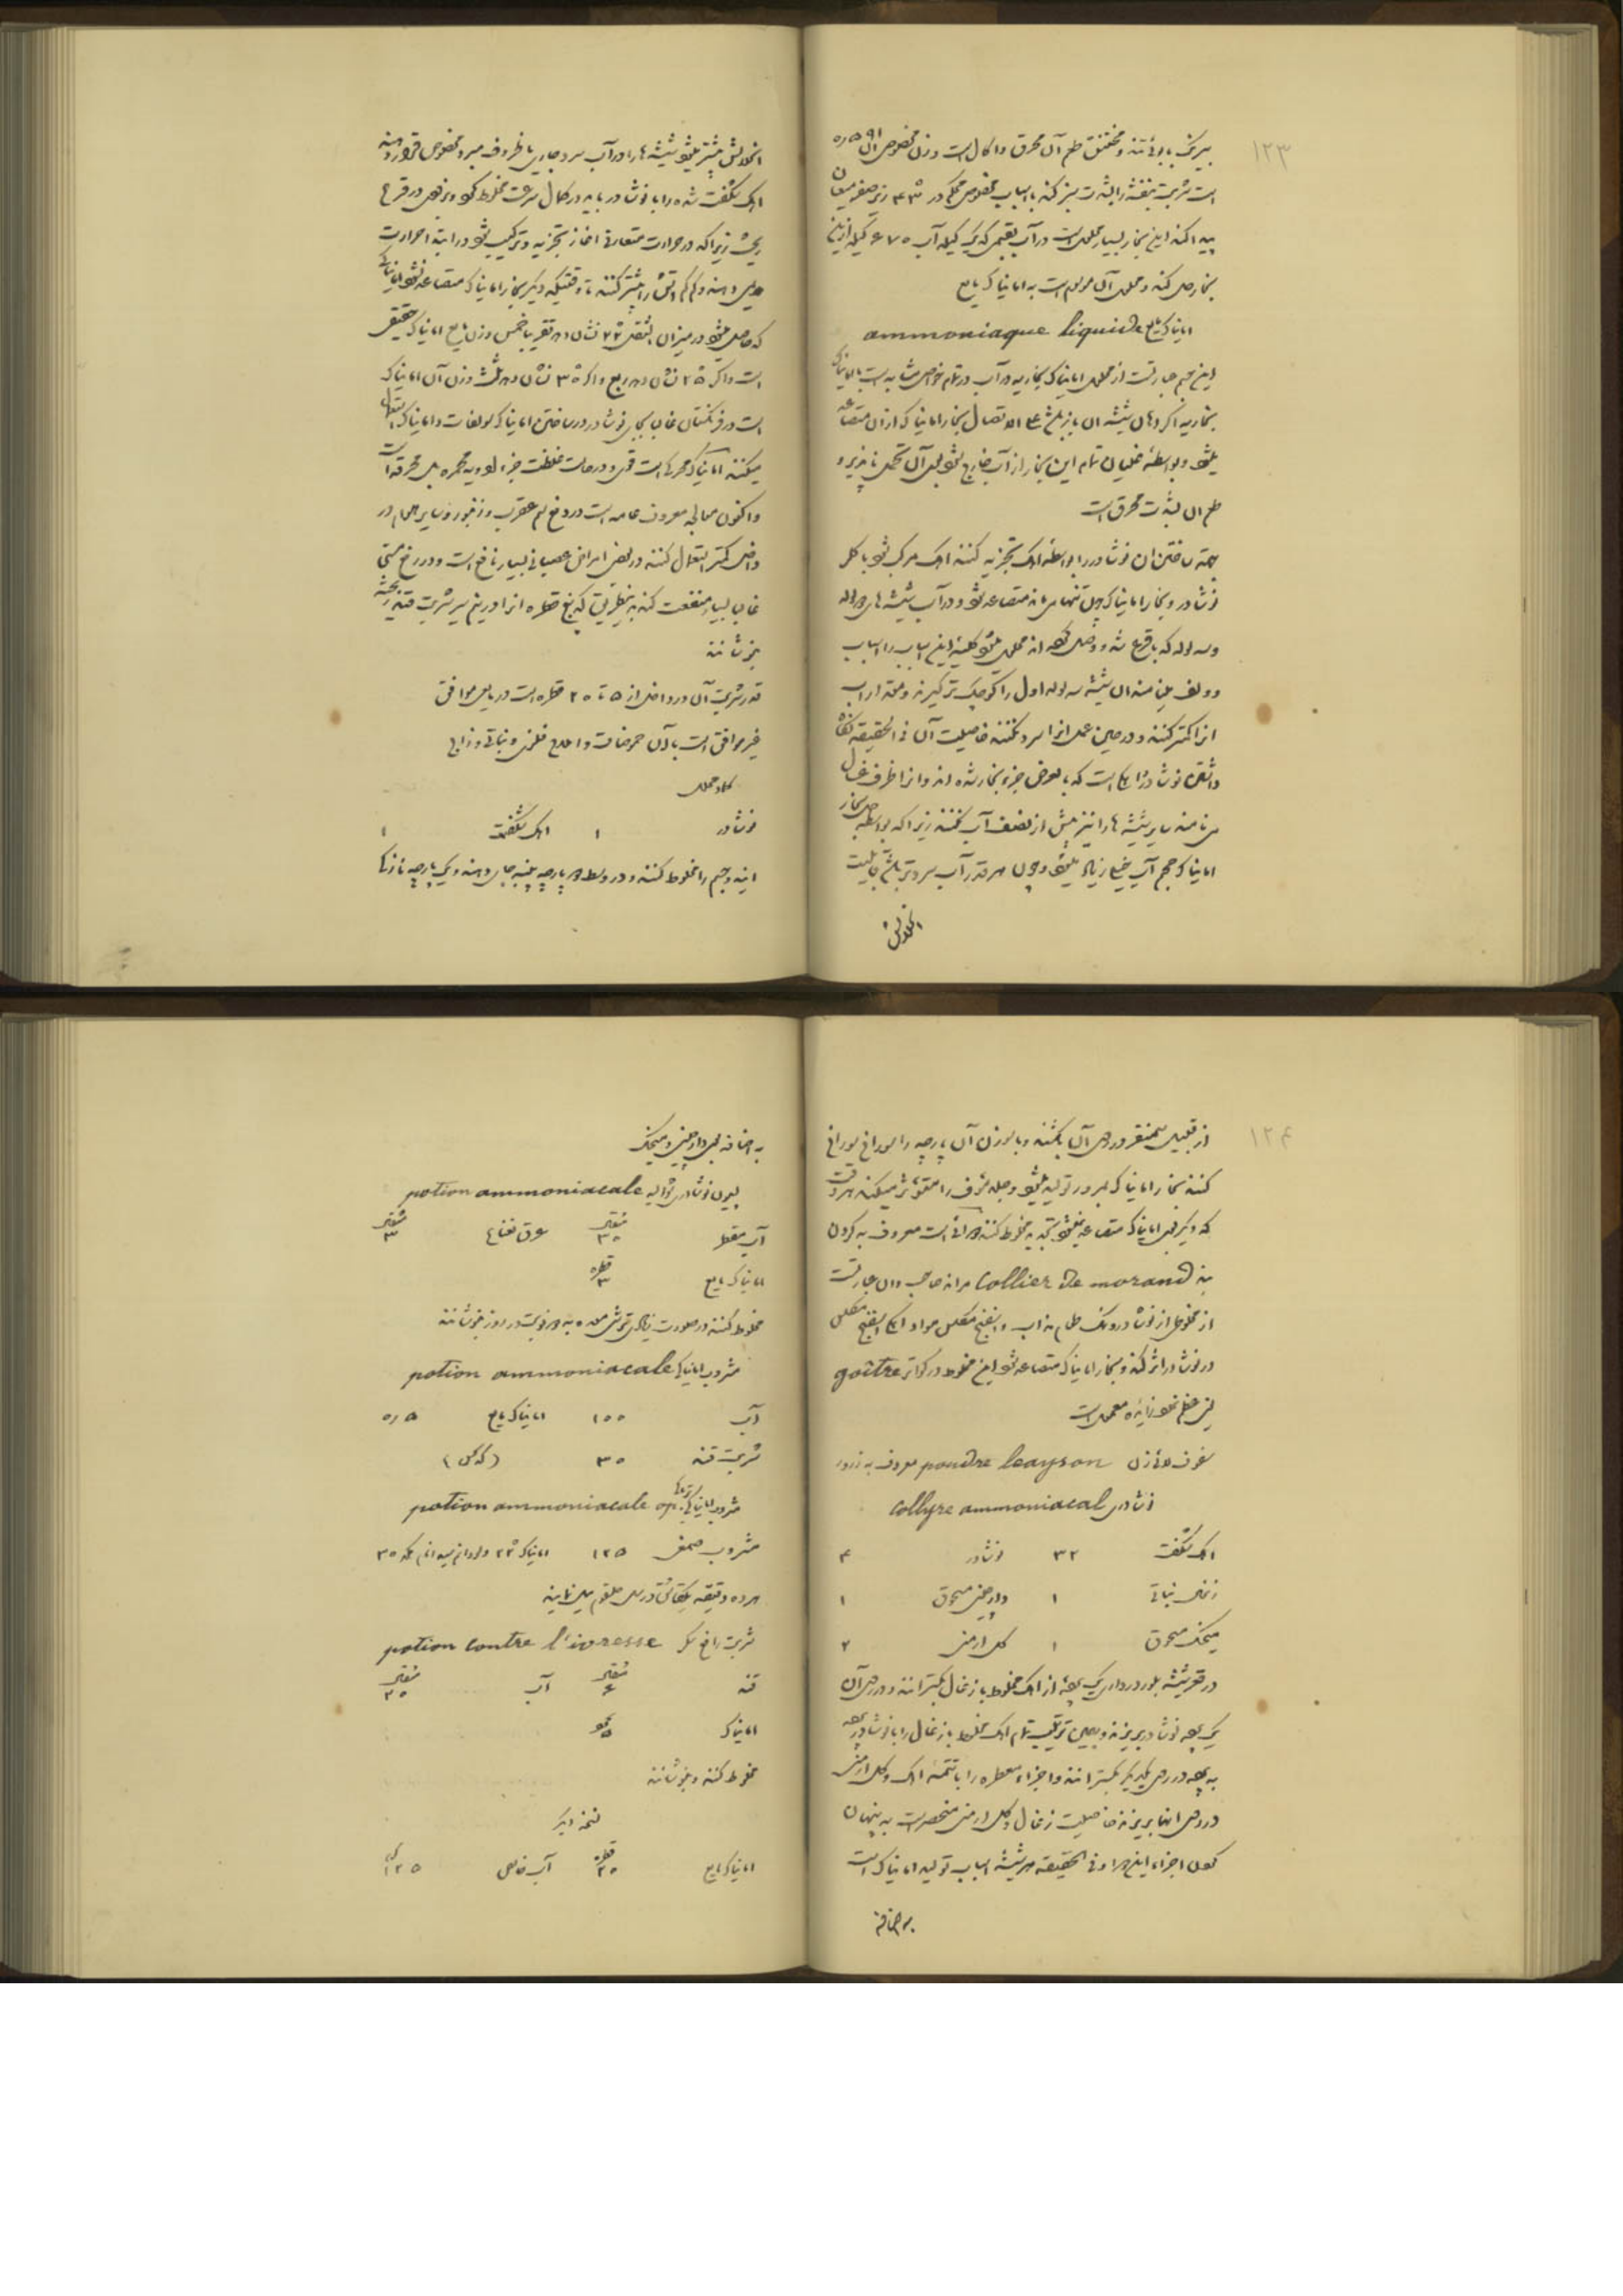 ۱۲۳
بیرنگ با بوئی تند و مختنق طعم آن محرق و اکال است وزن مخصوص آن ۵۹۱ر۰
است شربت بنفشه را بشدت سبز کند با اسباب مخصوص محکم در ۴۳° زیر صفر میعان
پیدا کند این بخار بسیار محلول است در آب بقسمی که یک کیله آب ۶۷۰ کیله ازین
بخار حل کند و محلول آن موسوم است به امانیاک مایع
امانیاک مایع ammoniaque liquide
این جسم عبارتست از محلول امانیاک بخاریه در آب در تمام خواص مشابه است با امانیاک
بخاریه اگر دهان شیشه آن باز باشد علی الاتصال بخار امانیاک از آن متصاعد
میشود و بواسطه غلیان تمام این بخار از آب خارج شود بوی آن تحمل ناپذیر و
طعم آن بشدت محرق است
بجهت ساختن آن نوشادر را بواسطه اهک تجزیه کنند اهک مرکب شود با کلر
نوشادر و بخار امانیاک چون تنها میماند متصاعد شود و در آب شیشه های دو لوله
و سه لوله که با قرع شده وصل کرده اند محلول میشود کلیه این اسباب را اسباب
وولف مینامند آن شیشه سه لوله اول را کوچکتر گیرند و مقدار آب
انرا کمتر کنند و در حین عمل انرا سرد نکنند خاصیت آن فی الحقیقه نگاه
داشتن نوشادر و اهک است که بالعرض جزء بخار شده اند و انرا ظرف غسال
می نامند سایر شیشه ها را نیز بیش از نصف آب نکنند زیرا که بواسطه حل بخار
امانیاک حجم آب خیلی زیاد میشود و چون هر قدر آب سردتر باشد قابلیت
انحلالش
انحلالش بیشتر میشود شیشه ها را در آب سرد جاری یا ظروف مبرد مخصوص قرار دهند
اهک شکفته شده را با نوشادر باید در کمال سرعت مخلوط کرد و بزودی در قرع
ریخت زیرا که در حرارت متعارفی اغاز تجزیه و ترکیب شود در ابتدا حرارت
ملایمی دهند و کم کم اتش را بیشتر کنند تا وقتیکه دیگر بخار امانیاک متصاعد نشود امانیاکی
که حاصل میشود در میزان الثقل ۲۲° نشان دهد تقریبا خمس وزن مایع امانیاک حقیقی
است و اگر ۲۵° نشان دهد ربع و اگر ۳۰° نشان دهد ثلث وزن آن امانیاک
است در فرنگستان غالب بجای نوشادر در ساختن امانیاک سولفات دامانیاک استعمال
میکنند امانیاک محرکی است قوی و در حالت غلظت جزء ادویه محمره بل محرقه است
و اکنون معالجه معروف عامه است در دفع سم عقرب و زنبور و سایر هوام در
داخل کمتر استعمال کنند در بعض امراض عصبانی بسیار نافع است و در رفع مستی
غالب بسیار منفعت کند به اینطریق که پنج قطره انرا در نیم سیر شربت قند ریخته
بنوشانند
قدر شربت آن در داخل از ۵ تا ۲۰ قطره است در مایعی موافق
غیر موافق است با آن حموضات و املاح فلزی و نباتی و زاج
گلاد محلل
نوشادر ۱ اهک شکفته ۱
این دو جسم را مخلوط کنند و در وسط دو پارچه پنبه جای دهند و یک پارچه نازکی
۱۲۴
از قبیل سمنقر در روی آن بکشند و با سوزن آن پارچه را سوراخ سوراخ
کنند بخار امانیاک بمرور تولید میشود و جلد مئوف را متأثر میسکند هر وقت
که دیگر بوی امانیاک متصاعد نمیشود تجدید مخلوط کنند دوائی است معروف به گردن
بند Collier de morand مراند صاحب و آن عبارتست
از مخلوطی از نوشادر و نمک طعام مذاب و اسفنج مکلس مواد اهکی اسفنج مکلس
در نوشادر اثر کند و بخار امانیاک متصاعد شود این مخلوط در گواتر goître
یعنی عظم غده زائده معمول است
سفوف لئزن poudre leayson معروف به ذرور
نشادری collyre ammoniacal
اهک شکفته ۳۲ نوشادر ۴
زغال نباتی ۱ دارچینی مسحوق ۱
میخک مسحوق ۱ گل ارمنی ۲
در قعر شیشه بلور درداری یک طبقه از اهک مخلوط با زغال بگسترانند و در روی آن
یک طبقه نوشادر بریزند و بهمین ترتیب تمام اهک مخلوط با زغال را با نوشادر طبقه
به طبقه در روی یکدیگر بگسترانند و اجزاء معطره را با تتمه اهک و گل ارمنی
در روی آنها بریزند خاصیت زغال و گل ارمنی منحصر است به پنهان
کردن اجزاء این دوا و فی الحقیقه هر شیشه اسباب تولید امانیاک است
به اضافه
به اضافه بوی دارچینی و میخک
لیمون نوشادری شوالیه potion ammoniacale
آب مقطر مثقال ۳۰ عرق نعناع مثقال ۳
امانیاک مایع قطره ۳
مخلوط کنند در صورت زیادی ترشی معده به دو نوبت در روز بنوشانند
مشروب امانیاکی potion ammoniacale
آب ۱۰۰ امانیاک مایع ۵ر۰
شربت قند ۳۰
مشروب امانیاکی potion ammoniacale op.
مشروب صمغی ۱۲۵ امانیاک ۲۲°
هر ده دقیقه یک قاشق
شربت رافع سکر potion contre l'ivresse
قند مثقال ۶ آب مثقال ۳۰
امانیاک ۵
مخلوط کنند و بنوشانند
نسخه دیگر
امانیاک مایع قطره ۲۰ آب خالص ۱۲۵